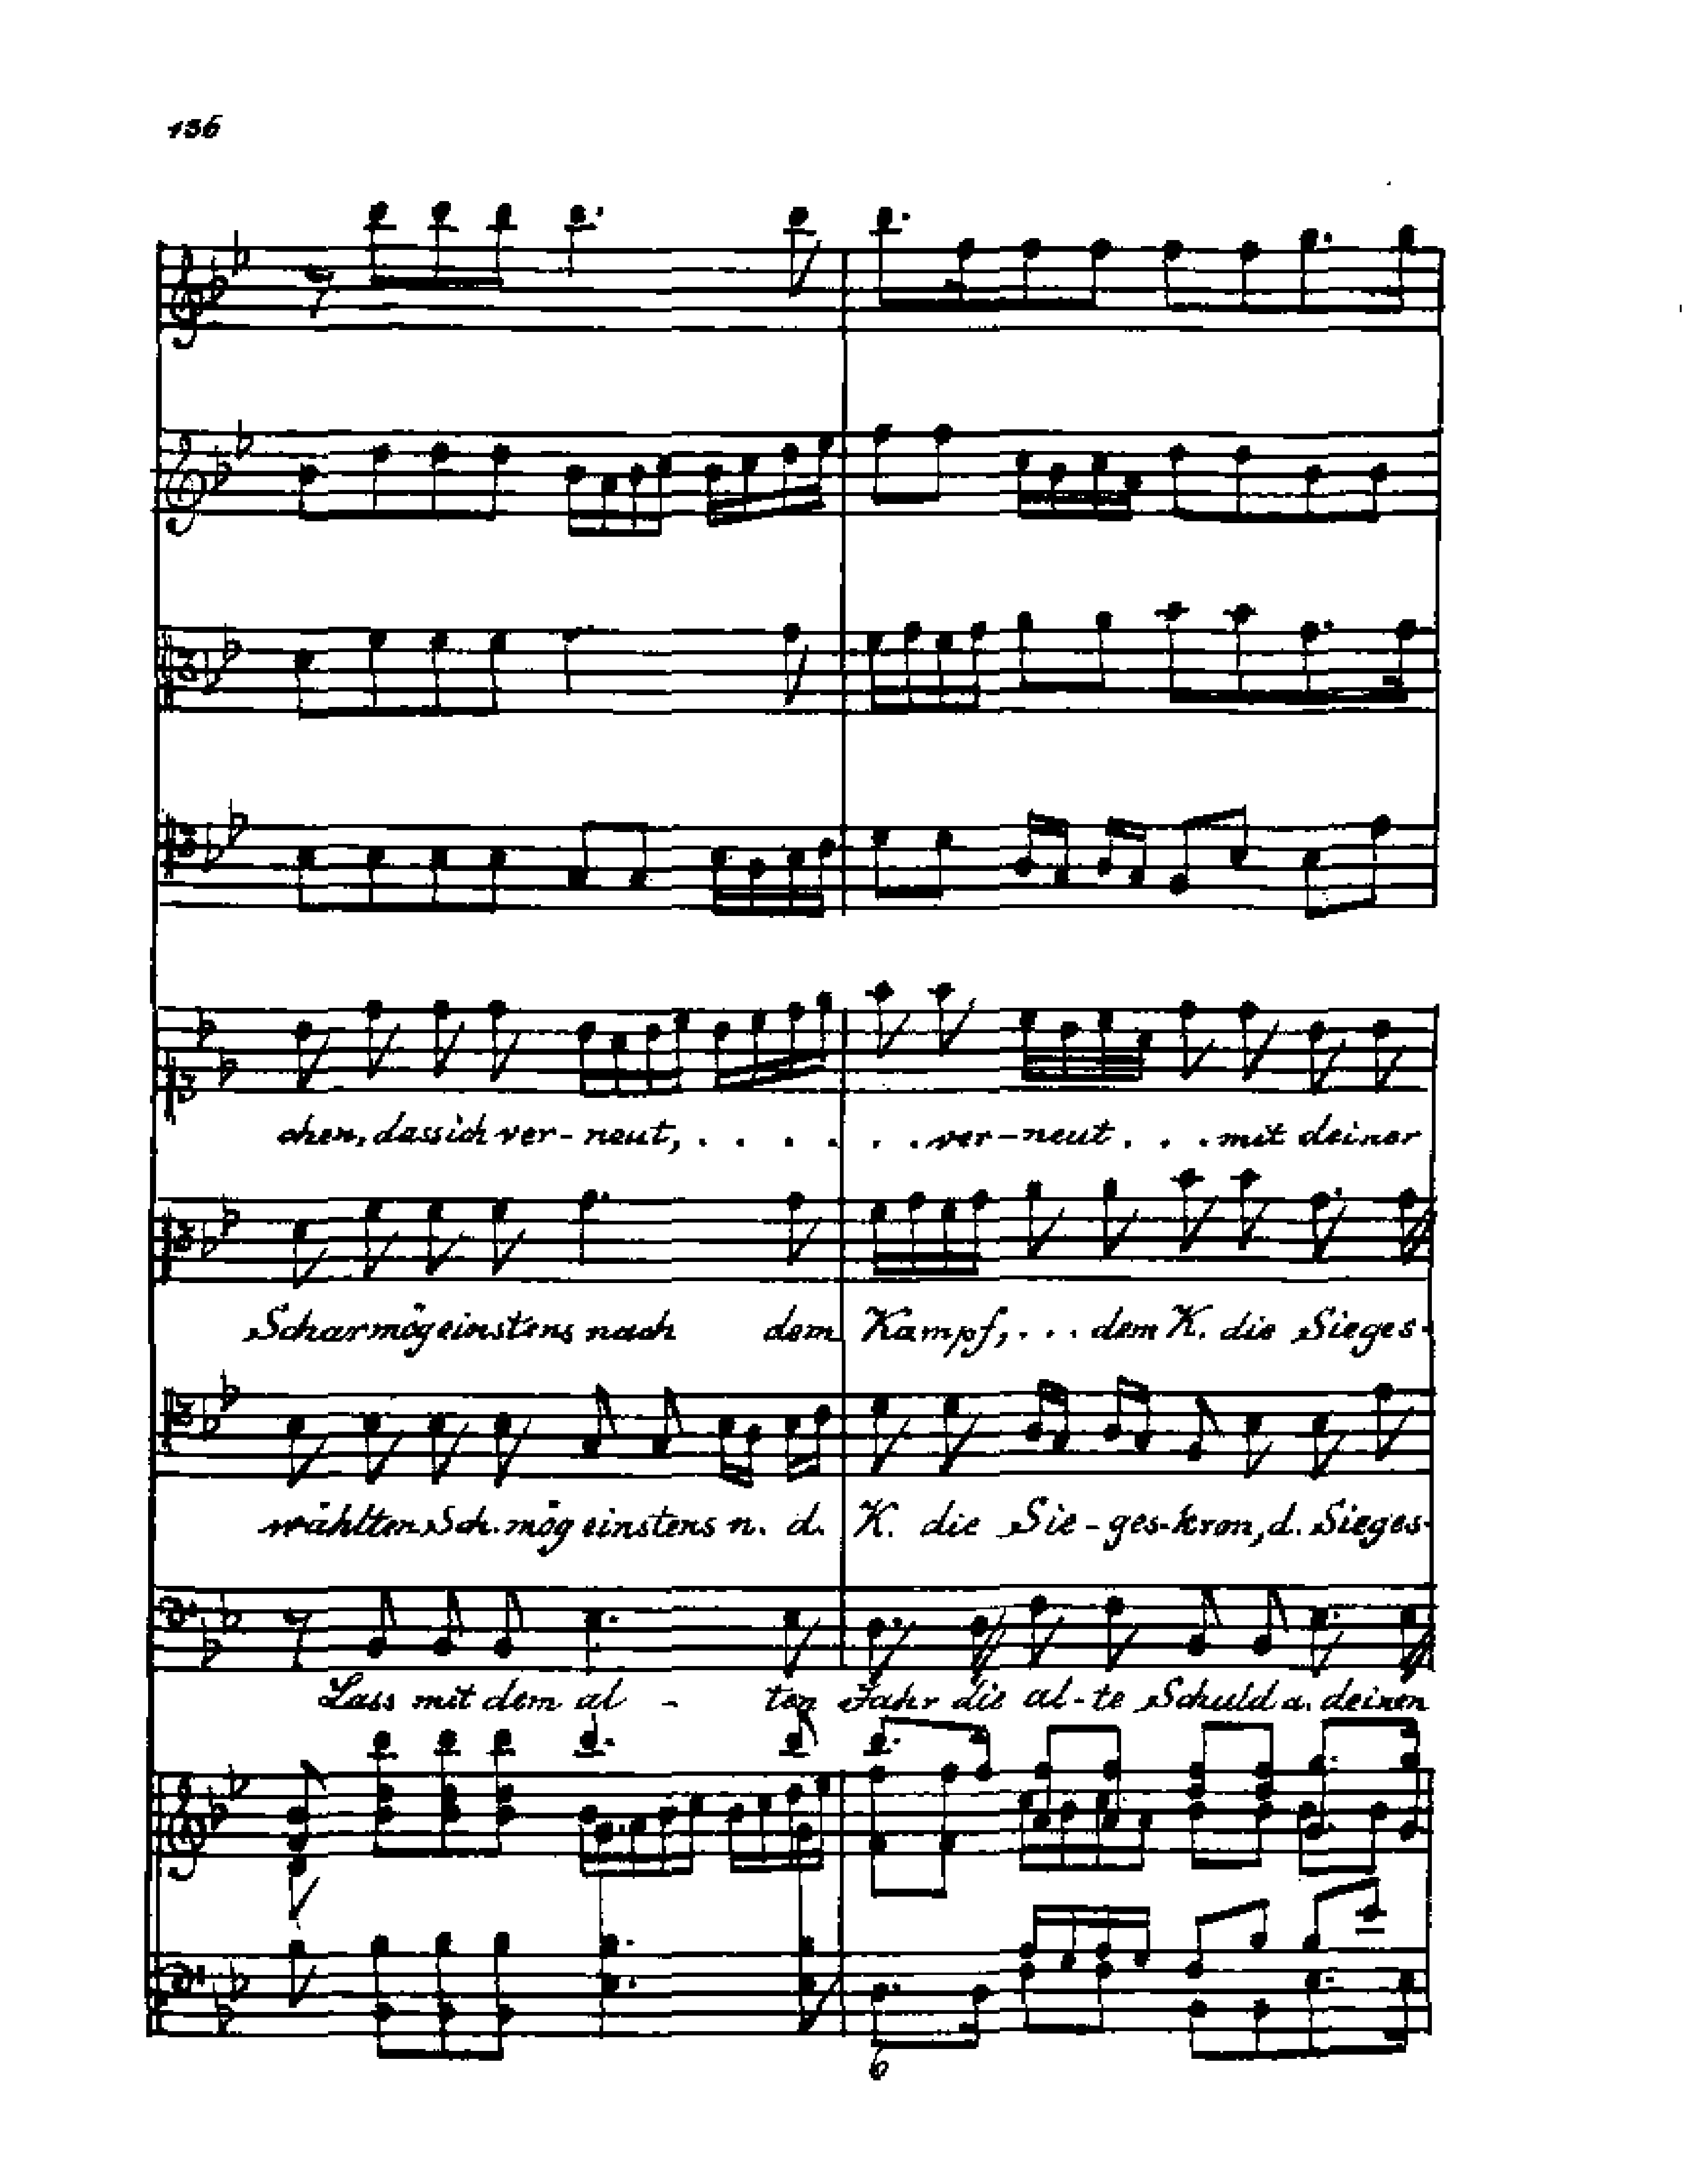 136
chen, dass ich ver- neut, . . . . . . ver-neut . . . mit deiner
Schar mög einstens nach dem Kampf, . . . dem K. die Sieges-
wählten Sch. mög einstens n. d. K. die Sie-ges-kron, d. Sieges-
Lass mit dem al - ten Jahr die al-te Schuld a. deinen
6